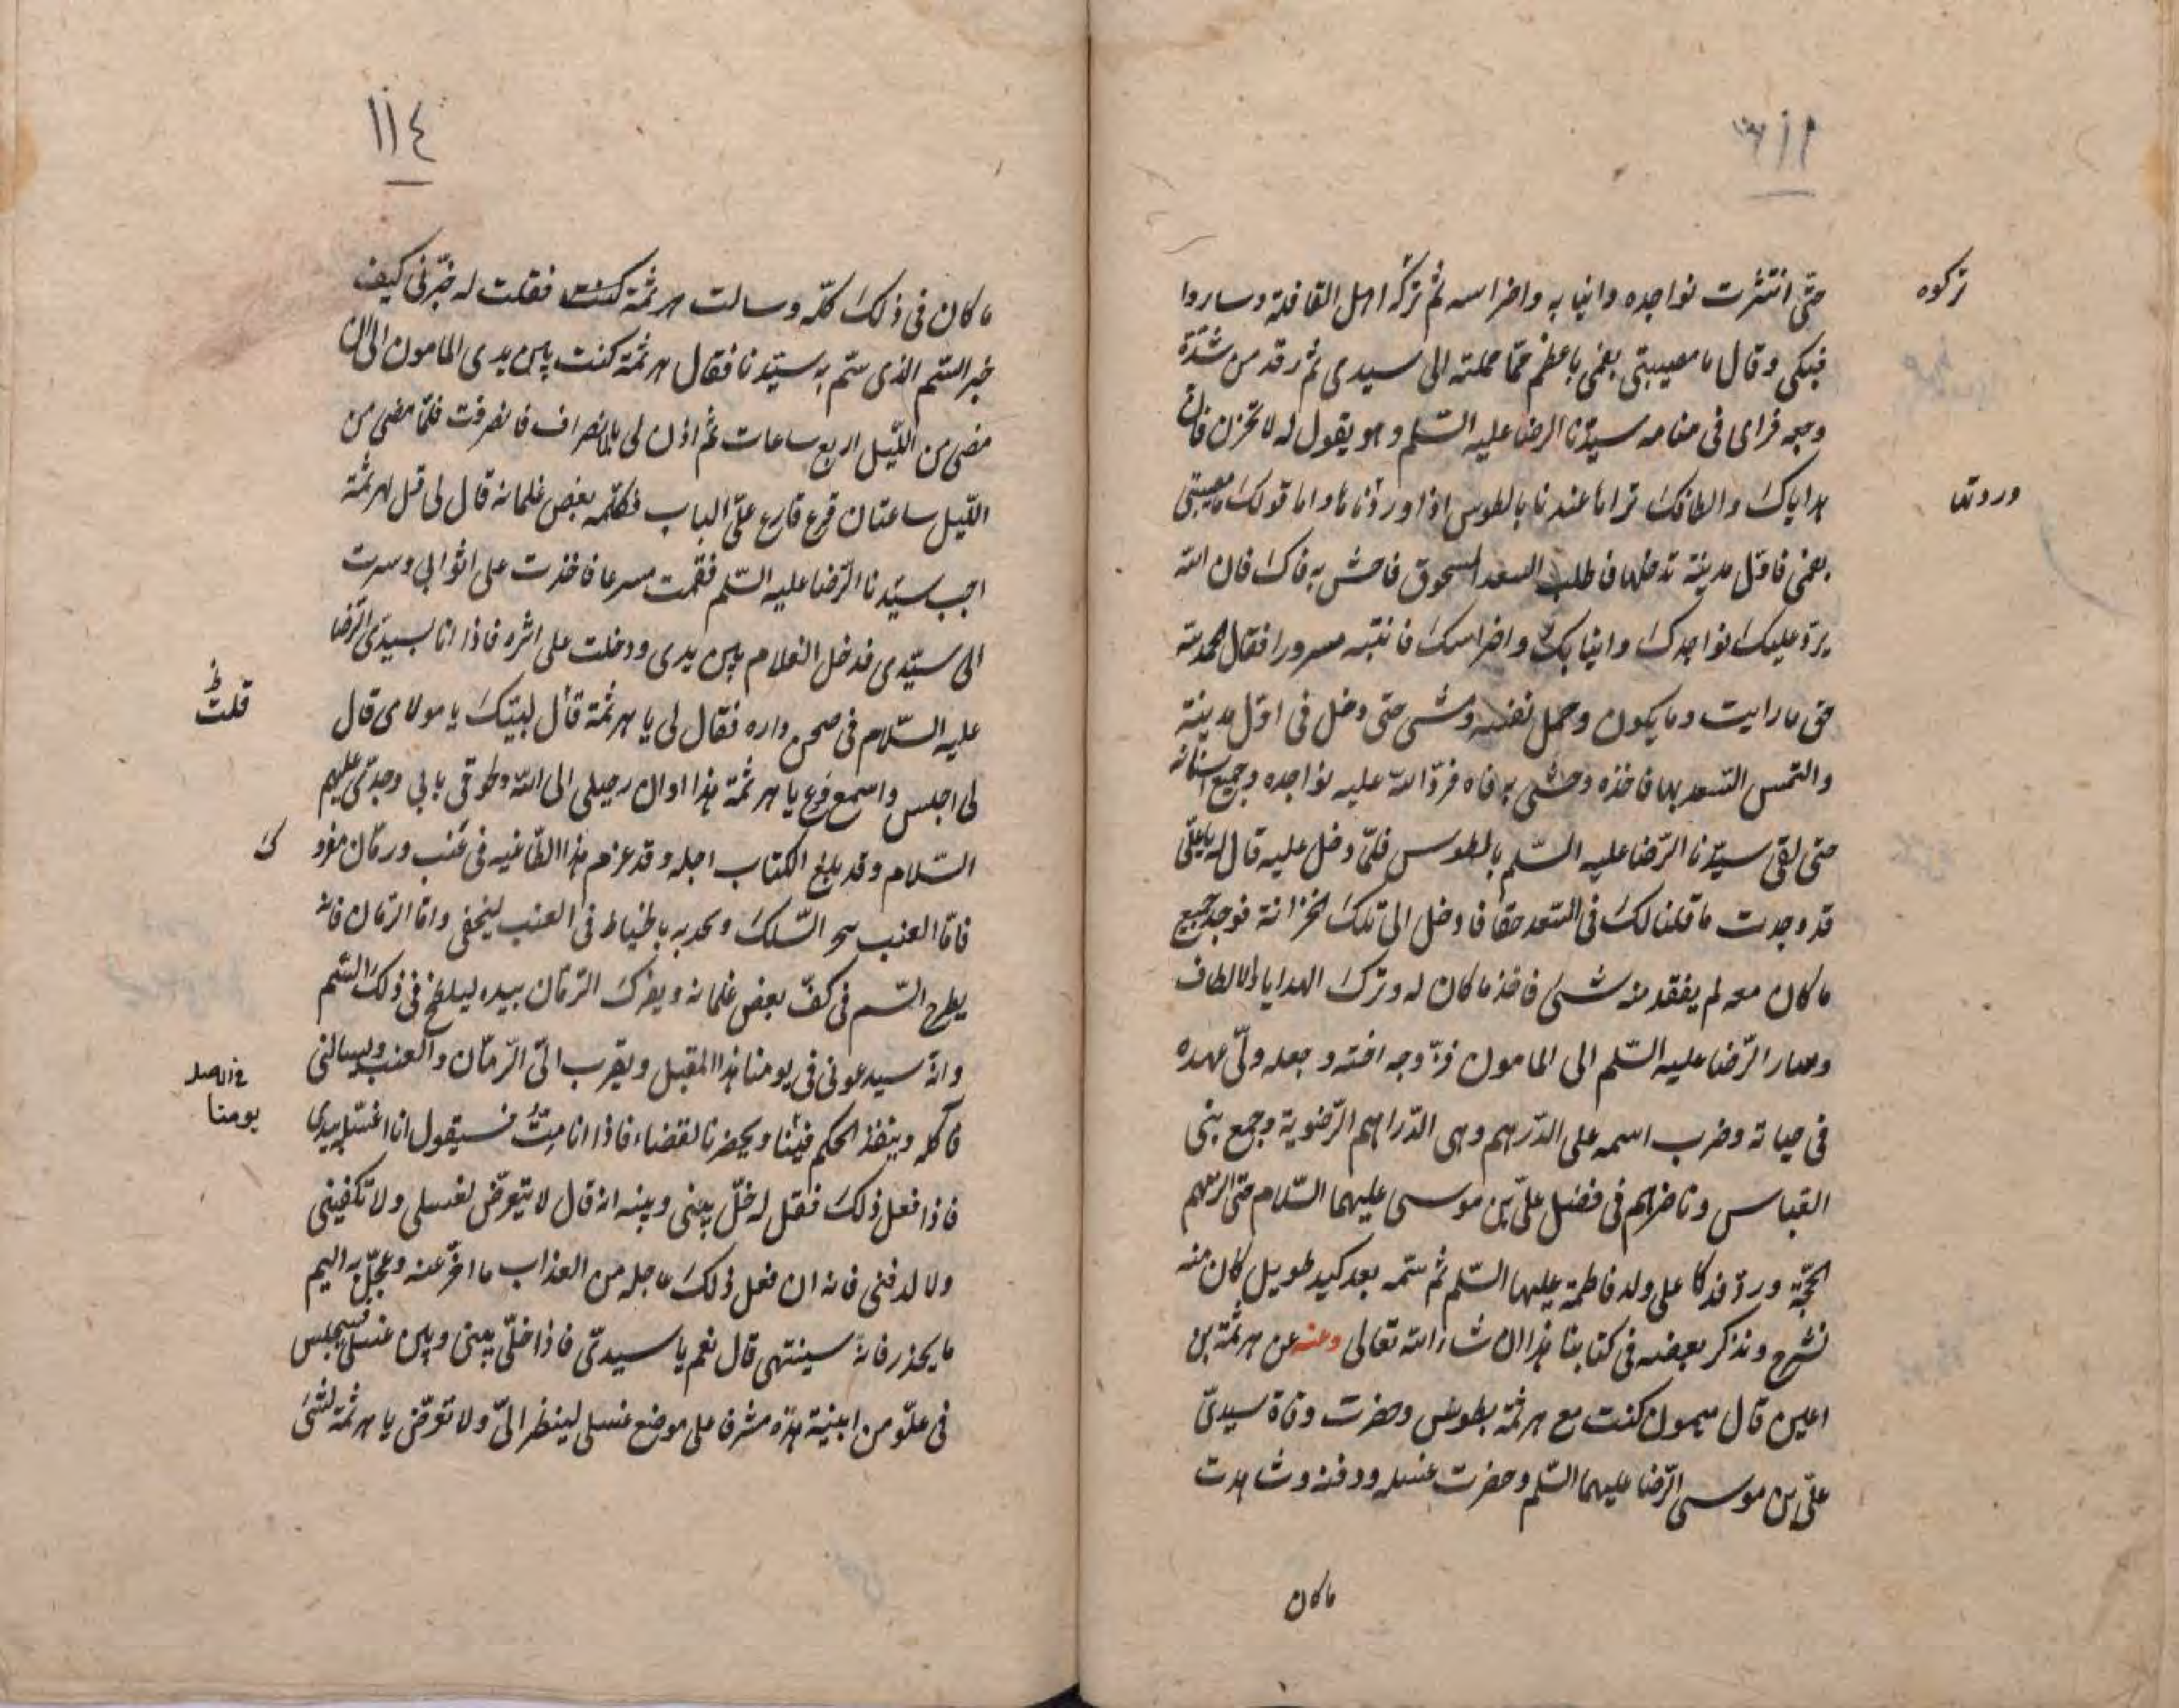 حتى انتثرت نواجده وانيابه واضراسه ثم تركه اهل القافلة وساروا
تركوه
فبكى وقال ما مصيبتي بفمي باعظم مما حملته الى سيدي ثم رقد من شدّة
وجعه فراى في منامه سيّدنا الرضا عليه السّلم وهو يقول له لا تحزن فان
هداياك والطافك تراها عندنا بالطوس اذا وردنا واما قولك مصيبتي
وردتها
بفمي فاوّل مدينة تدخلها فاطلب السعد المسحوق فاحش به فاك فان الله
يردّ عليك نواجدك وانيابك واضراسك فانتبه مسرورا فقال الحمد لله
حق ما رايت وما يكون وحمل نفسه ومشى حتى دخل في اوّل مدينة
والتمس السّعد بها فاخذه وحشى به فاه فردّ الله عليه نواجده وجميع اسنانه
حتى لقى سيّدنا الرّضا عليه السّلم بالطوس فلمّا دخل عليه قال له يا علي
قد وجدت ما قلنا لك في السّعد حقا فادخل الى تلك الخزانة فوجد جميع
ما كان معه لم يفقد منه شئ فاخذ ما كان له وترك الهدايا والالطاف
وصار الرّضا عليه السّلم الى المامون فزوّجه اخته وجعله ولىّ عهده
في حياته وضرب اسمه على الدّرهم وهي الدّراهم الرّضوية وجمع بني
العباس وناظرهم في فضل علىّ بن موسى عليهما السّلام حتى الزمهم
الحجّة وردّ فدكا على ولد فاطمة عليها السّلم ثم سمّه بعد كيد طويل كان منه
نشرح ونذكر بعضه في كتابنا هذا ان شاء الله تعالى وعنه عن هرثمة بن
اعين قال ميمون كنت مع هرثمة بطوس وحضرت وفاة سيدىّ
علىّ بن موسى الرّضا عليهما السّلم وحضرت غسله ودفنه وشاهدت
ما كان
١١٤
ما كان في ذلك كلّه وسالت هرثمة كنت فقلت له خبّرني كيف
خبر السّم الذي سمّ به سيّدنا فقال هرثمة كنت بين يدى المامون الى ان
مضى من الليل اربع ساعات ثم اذن لى بالانصراف فانصرفت فلمّا مضى من
الليل ساعتان قرع قارع علىّ الباب فكلّمه بعض غلمانه قال لى قل لهرثمة
اجب سيّدنا الرّضا عليه السّلم فقمت مسرعا فاخذت على اثوابي وسرت
الى سيّدى فدخل الغلام بين يدى ودخلت على اثره فاذا انا بسيّدى الرّضا
عليه السّلام في صحن داره فقال لى يا هرثمة قال لبيّك يا مولاى قال
قلت
لى اجلس واسمع وع يا هرثمة هذا اوان رحيلى الى الله ولحوقى بابي وجدّى عليهم
السّلام وقد بلغ الكتاب اجله وقد عزم هذا الطّاغيه في عنب ورمّان مفرو
ك
فامّا العنب السّلك ويجذبه بالخياط في العنب ليخفى وامّا الرّمان فانه
يطرح السّم في كفّ بعض غلمانه ويفرك الرّمّان بيده ليلطخ في ذلك السّم
وانّه سيدعوني في يومنا هذا المقبل ويقرب الىّ الرّمّان والعنب ويسالني
يومنا
فآكله وينفذ الحكم فينا ويحضرنا القضاء فاذا انا متّ فسيقول انا اغسّله بيدى
فاذا فعل ذلك فقل له خلّ بيني وبينه انه قال لا يتعرّض لغسلى ولا تكفيني
ولا لدفنى فانه ان فعل ذلك عاجله من العذاب ما اخّر عنه وعجّل به اليم
ما يحذر فانّه سينتهى قال نعم يا سيدىّ فاذا خلّى بيني وبين غسلى فيجلس
في علوّ من ابنية هذه مشرف على موضع غسلى لينظر الىّ ولا تعرّض يا هرثمة لشئ